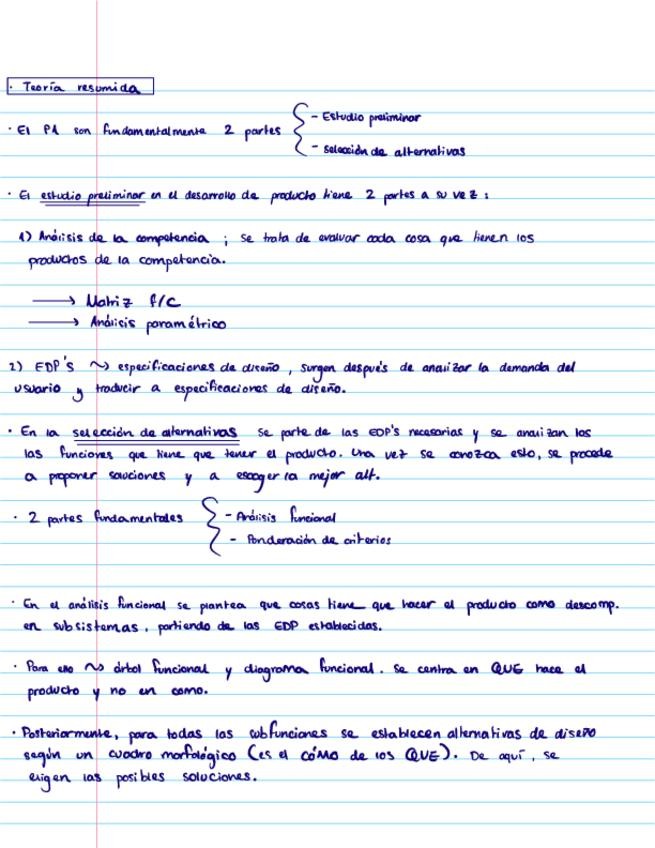 · Teoría resumida
· El PA son fundamentalmente 2 partes
- Estudio preliminar
- selección de alternativas
· El estudio preliminar en el desarrollo de producto tiene 2 partes a su vez :
1) Análisis de la competencia ; se trata de evaluar cada cosa que tienen los
productos de la competencia.
→ Matriz f/C
→ Análisis paramétrico
2) EDP's ~> especificaciones de diseño , surgen después de analizar la demanda del
usuario y traducir a especificaciones de diseño.
· En la selección de alternativas se parte de las EDP's necesarias y se analizan las
las funciones que tiene que tener el producto. Una vez se conozca esto, se procede
a proponer soluciones y a escoger la mejor alt.
· 2 partes fundamentales
- Análisis funcional
- Ponderación de criterios
· En el análisis funcional se plantea que cosas tiene que hacer el producto como descomp.
en subsistemas, partiendo de las EDP establecidas.
· Para ello ~> árbol funcional y diagrama funcional. Se centra en QUE hace el
producto y no en como.
· Posteriormente, para todas las subfunciones se establecen alternativas de diseño
según un cuadro morfológico (es el CÓMO de los QUE). De aquí, se
eligen las posibles soluciones.